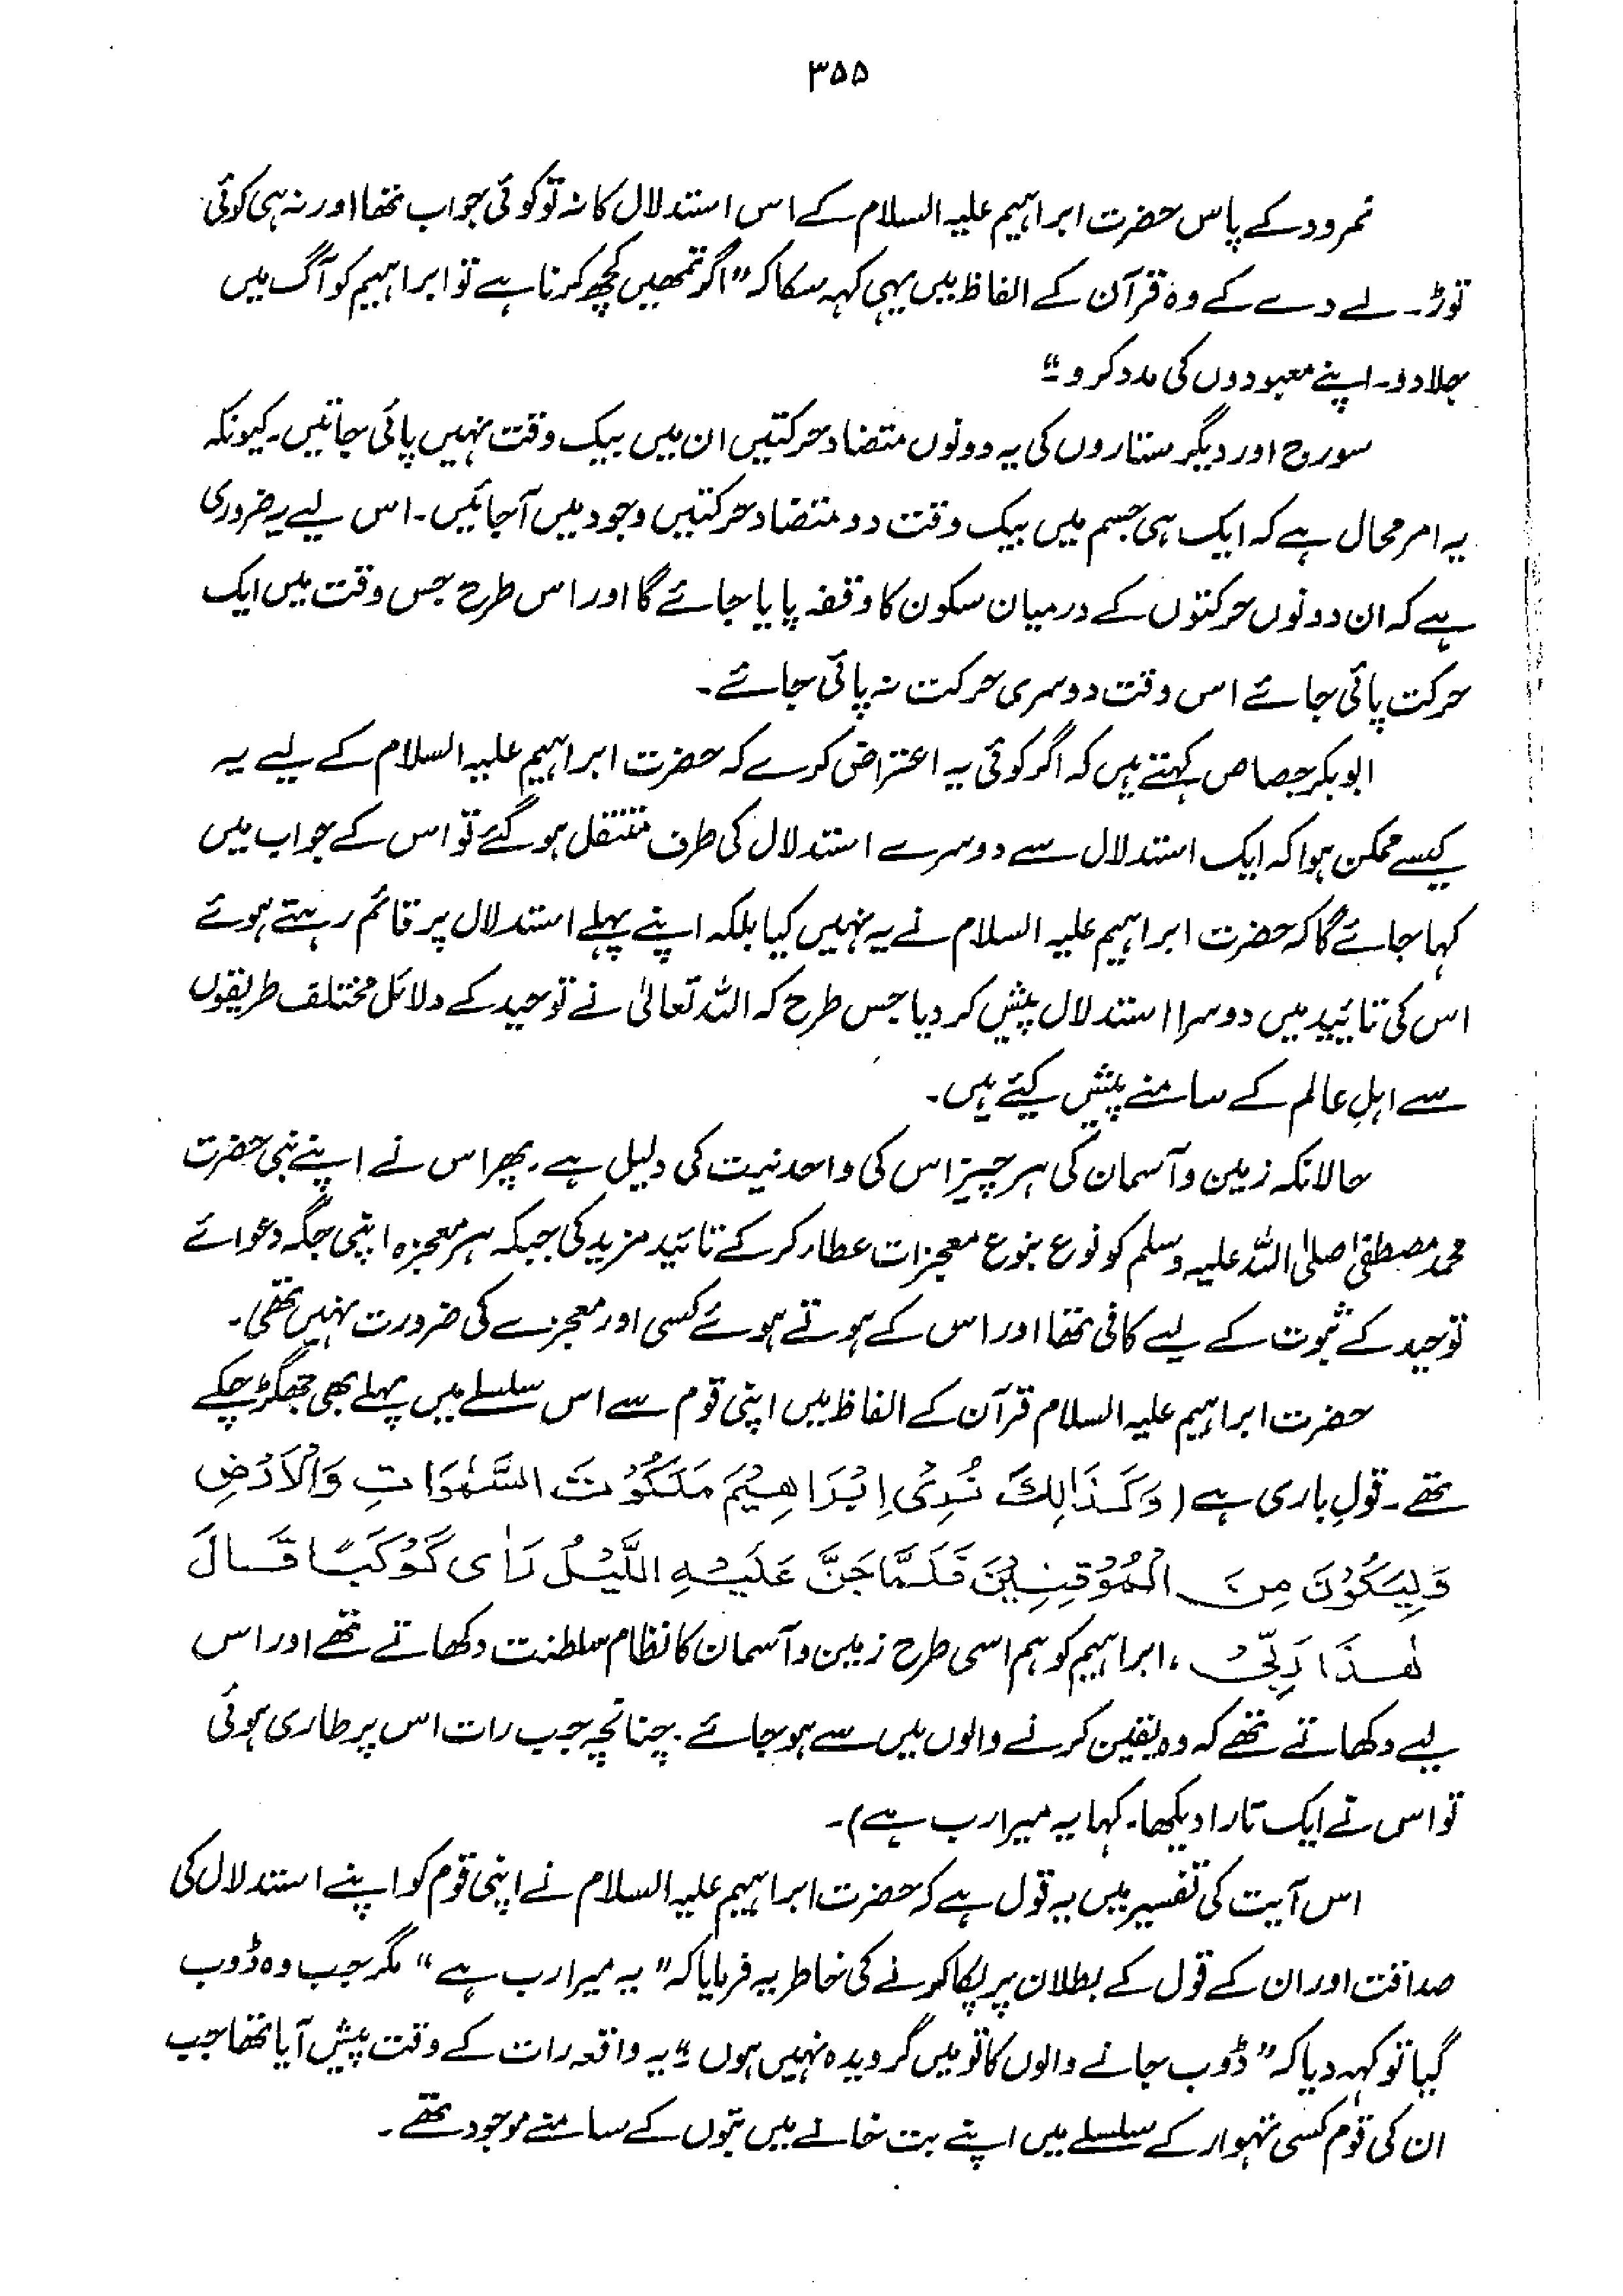 ۳۵۵
نمرود کے پاس حضرت ابراہیم علیہ السلام کے اس استدلال کا نہ تو کوئی جواب تھا اور نہ ہی کوئی
توڑ۔ لے دے کے وہ قرآن کے الفاظ میں یہی کہہ سکا کہ "اگر تمھیں کچھ کرنا ہے تو ابراہیم کو آگ میں
جلا دو۔ اپنے معبودوں کی مدد کرو"۔
سورج اور دیگر ستاروں کی یہ دونوں متضاد حرکتیں ان میں بیک وقت نہیں پائی جاتیں۔ کیونکہ
یہ امر محال ہے کہ ایک ہی جسم میں بیک وقت دو متضاد حرکتیں وجود میں آجائیں۔ اس لیے یہ ضروری
ہے کہ ان دونوں حرکتوں کے درمیان سکون کا وقفہ پایا جائے گا اور اس طرح جس وقت میں ایک
حرکت پائی جائے اس وقت دوسری حرکت نہ پائی جائے۔
ابوبکر جصاص کہتے ہیں کہ اگر کوئی یہ اعتراض کرے کہ حضرت ابراہیم علیہ السلام کے لیے یہ
کیسے ممکن ہوا کہ ایک استدلال سے دوسرے استدلال کی طرف منتقل ہو گئے تو اس کے جواب میں
کہا جائے گا کہ حضرت ابراہیم علیہ السلام نے یہ نہیں کیا بلکہ اپنے پہلے استدلال پر قائم رہتے ہوئے
اس کی تائید میں دوسرا استدلال پیش کر دیا جس طرح کہ اللہ تعالیٰ نے توحید کے دلائل مختلف طریقوں
سے اہلِ عالم کے سامنے پیش کیے ہیں۔
حالانکہ زمین و آسمان کی ہر چیز اس کی واحدنیت کی دلیل ہے۔ پھر اس نے اپنے نبی حضرت
محمد مصطفیٰ صلی اللہ علیہ وسلم کو نوع بنوع معجزات عطاء کر کے تائید مزید کی جبکہ ہر معجزہ اپنی جگہ دعوائے
توحید کے ثبوت کے لیے کافی تھا اور اس کے ہوتے ہوئے کسی اور معجزے کی ضرورت نہیں تھی۔
حضرت ابراہیم علیہ السلام قرآن کے الفاظ میں اپنی قوم سے اس سلسلے میں پہلے بھی جھگڑ چکے
تھے۔ قولِ باری ہے (وَكَذَالِكَ نُرِیْ اِبْرَاهِیْمَ مَلَكُوْتَ السَّمٰوَاتِ وَالْاَرْضِ
وَلِیَكُوْنَ مِنَ الْمُوْقِنِیْنَ فَلَمَّا جَنَّ عَلَیْهِ اللَّیْلُ رَاٰی كَوْكَبًا قَالَ
هٰذَا رَبِّیْ، ابراہیم کو ہم اسی طرح زمین و آسمان کا نظام سلطنت دکھاتے تھے اور اس
لیے دکھاتے تھے کہ وہ یقین کرنے والوں میں سے ہو جائے۔ چنانچہ جب رات اس پر طاری ہوئی
تو اس نے ایک تارا دیکھا۔ کہا یہ میرا رب ہے)۔
اس آیت کی تفسیر میں یہ قول ہے کہ حضرت ابراہیم علیہ السلام نے اپنی قوم کو اپنے استدلال کی
صداقت اور ان کے قول کے بطلان پر پکا کرنے کی خاطر یہ فرمایا کہ "یہ میرا رب ہے" مگر جب وہ ڈوب
گیا تو کہہ دیا کہ "ڈوب جانے والوں کا تو میں گرویدہ نہیں ہوں" یہ واقعہ رات کے وقت پیش آیا تھا جب
ان کی قوم کسی تہوار کے سلسلے میں اپنے بت خانے میں بتوں کے سامنے موجود تھے۔